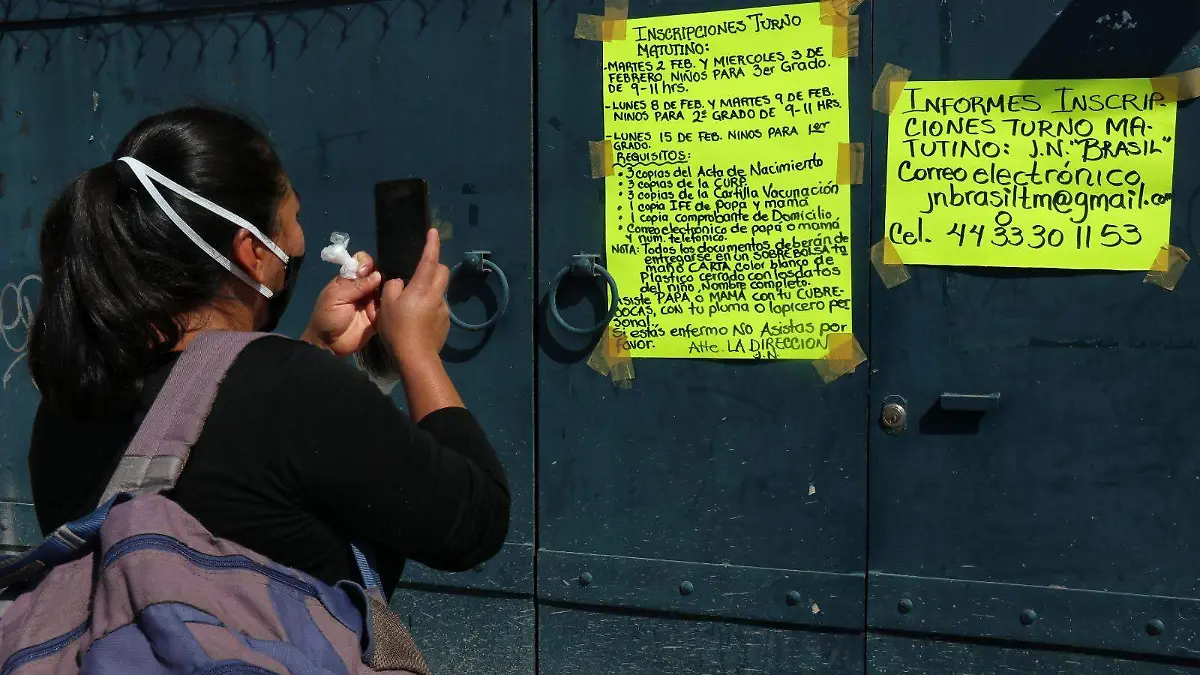 INSCRIPCIONES TURNO
MATUTINO:
-MARTES 2 FEB. Y MIERCOLES 3 DE
FEBRERO, NIÑOS PARA 3er GRADO.
DE 9-11 HRS.
-LUNES 8 DE FEB. Y MARTES 9 DE FEB.
NINOS PARA 2º GRADO DE 9-11 HRS.
-LUNES 15 DE FEB. NINOS PARA 1er
GRADO.
REQUISITOS:
• 3 copias del Acta de Nacimiento
• 3 copias de la CURP
• 3 copias de la Cartilla Vacunación
• 1 copia IFE de Papá y mamá
• 1 copia comprobante de Domicilio
• Correo electrónico de papá o mamá
y num. telefónico.
NOTA: Todos los documentos deberán de
entregarse en un SOBRE BOLSA ta
maño CARTA color blanco de
Plastico cerrado con los datos
del niño. Nombre completo.
Asiste PAPÁ, ó MAMÁ con tu CUBRE-
BOCAS, CON tu pluma o lapicero per
sonal.
Si estás enfermo NO Asistas por
favor. Atte. LA DIRECCION
J.N.
INFORMES INSCRIP-
CIONES TURNO MA-
TUTINO: J.N. "BRASIL"
Correo electrónico
jnbrasiltm@gmail.com
o
Cel. 44 33 30 11 53